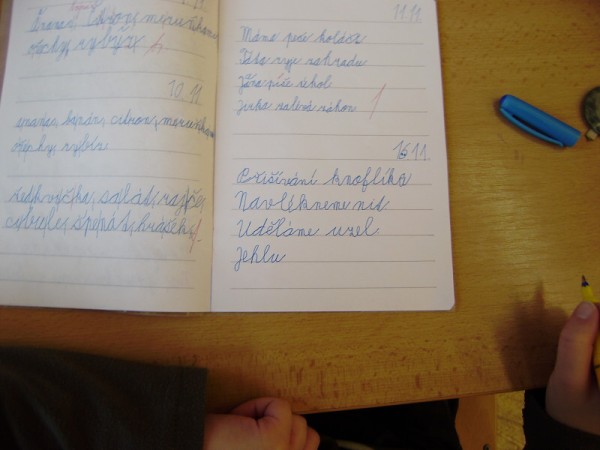 citron, meruňka
ořechy, rybíz
10. 11.
ananas, banán, citron, meruňka
ořechy, rybíz
ředkvička, salát, rajče,
cibule, špenát, hrášek,
11. 11.
Máma peče koláče
Táta ryje zahradu
píše úkol
Jirka zalévá záhon
16. 11.
Přišívání knoflíka
Navlékneme nit
Uděláme uzel
Jehlu